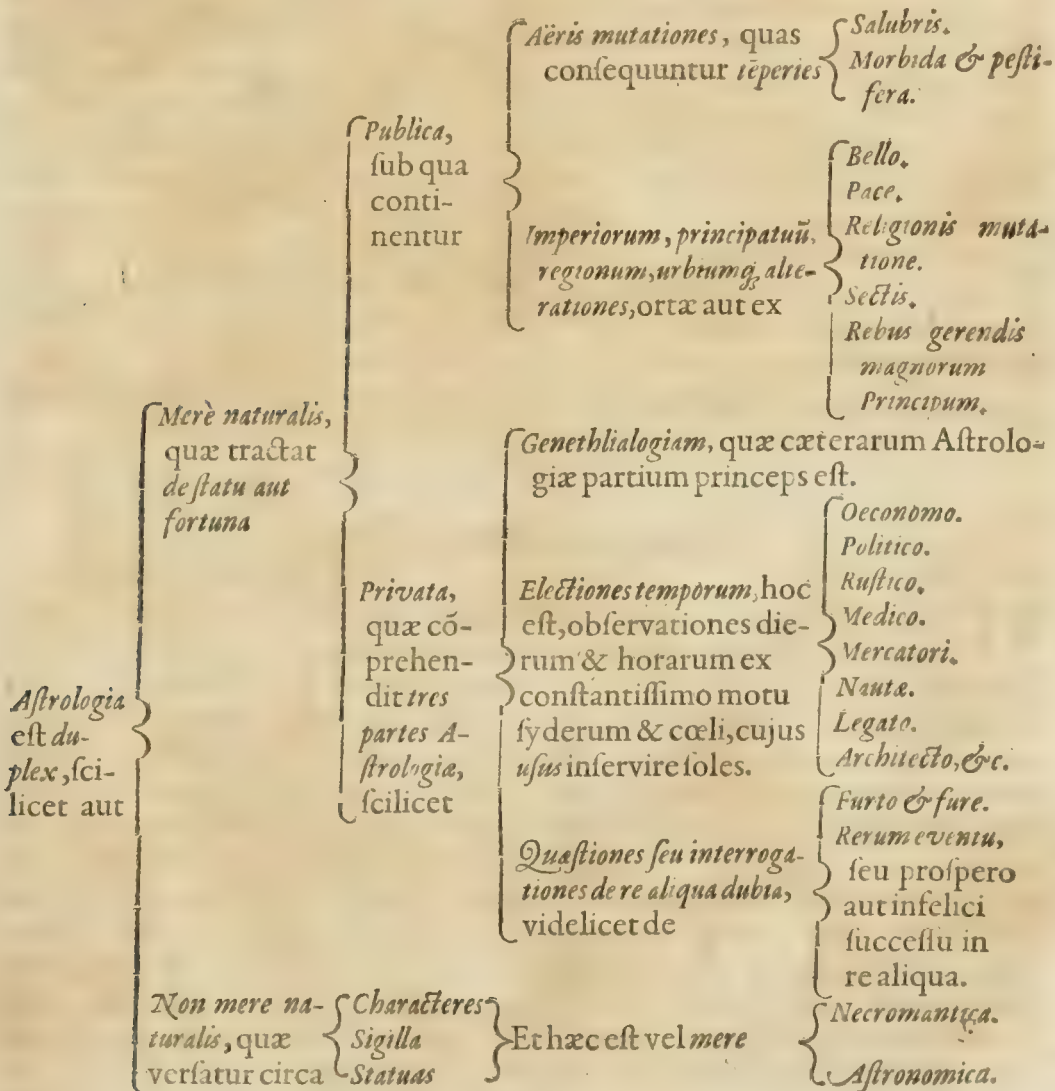 Astrologia
est du-
plex, sci-
licet aut
Merè naturalis,
quæ tractat
de statu aut
fortuna
Publica,
sub qua
conti-
nentur
Aëris mutationes, quas
consequuntur tēperies
Salubris.
Morbida & pesti-
fera.
Imperiorum, principatuū,
regionum, urbiumq; alte-
rationes, ortæ aut ex
Bello.
Pace.
Religionis muta-
tione.
Sectis.
Rebus gerendis
magnorum
Principum.
Privata,
quæ cō-
prehen-
dit tres
partes A-
strologiæ,
scilicet
Genethlialogiam, quæ cæterarum Astrolo-
giæ partium princeps est.
Electiones temporum, hoc
est, observationes die-
rum & horarum ex
constantissimo motu
syderum & cœli, cujus
usus inservire soles.
Oeconomo.
Politico.
Rustico.
Medico.
Mercatori.
Nautæ.
Legato.
Architecto, &c.
Quæstiones seu interroga-
tiones de re aliqua dubia,
videlicet de
Furto & fure.
Rerum eventu,
seu prospero
aut infelici
successu in
re aliqua.
Non mere na-
turalis, quæ
versatur circa
Characteres
Sigilla
Statuas
Et hæc est vel mere
Necromantica.
Astronomica.